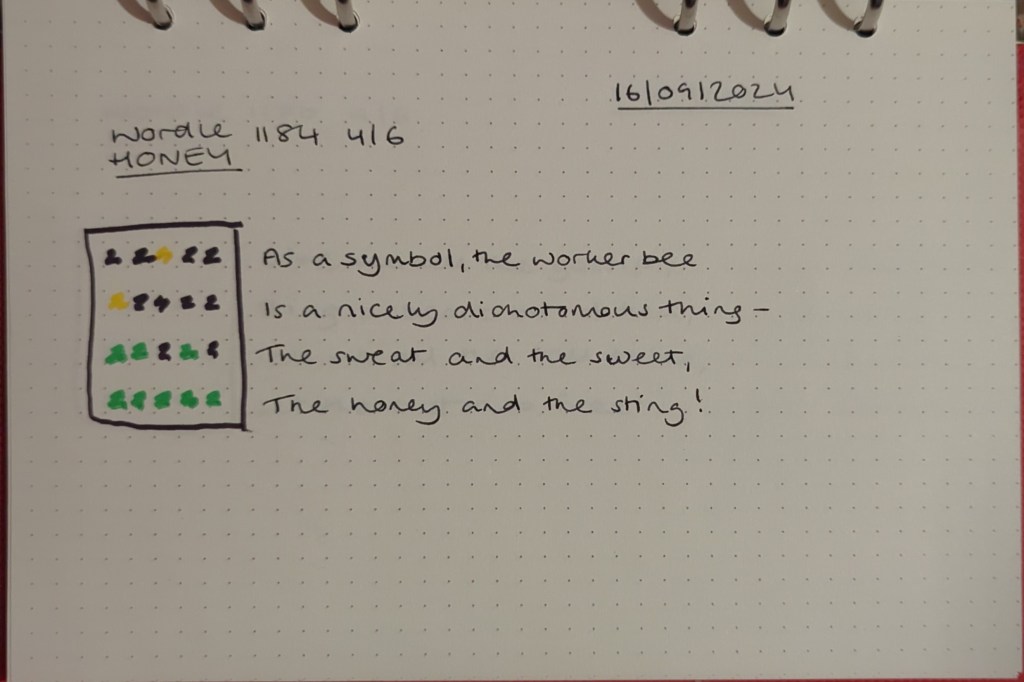 16/09/2024
Wordle 1184 4/6
HONEY
As a symbol, the worker bee
Is a nicely dichotomous thing –
The sweat and the sweet,
The honey and the sting!